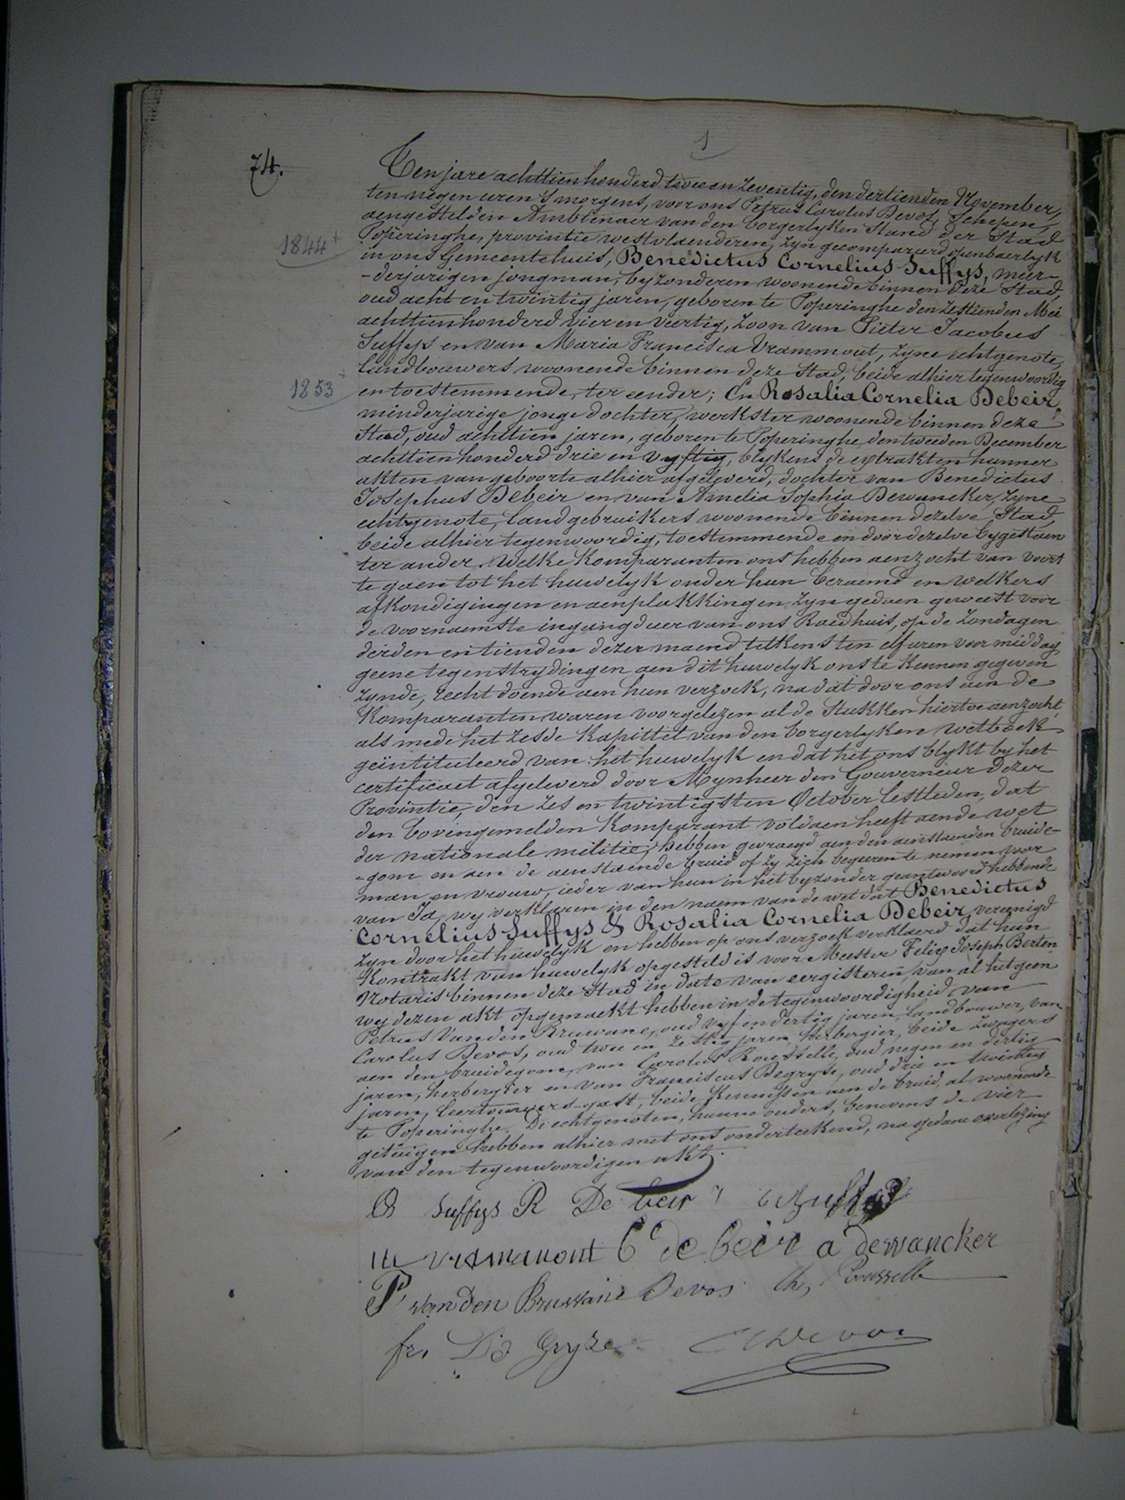 74.
1
Ten jare achttien honderd twee en zeventig, den dertienden November,
ten negen uren 's morgens, voor ons Petrus Carolus Devos, Schepen,
aengestelden Ambtenaer van den borgerlyken Stand der Stad
1844
Poperinghe, provintie westvlaenderen, zyn gecompareerd openbaerlyk
in ons Gemeentehuis, Benedictus Cornelius Suffys, meer-
-derjarigen jongman, byzonderen woonende binnen deze Stad,
oud acht en twintig jaren, geboren te Poperinghe den zestienden Mei
achttien honderd vier en veertig, zoon van Pieter Jacobus
Suffys en van Maria Francisca Vrammout, zyne echtgenote,
landbouwers woonende binnen deze Stad, beide alhier tegenwoordig
1853
en toestemmende, ter eender; En Rosalia Cornelia Debeir,
minderjarige jonge dochter, werkster woonende binnen deze
Stad, oud achttien jaren, geboren te Poperinghe den tweeden December
achttien honderd drie en vyftig, blykens de extrakten hunner
akten van geboorte alhier afgeleverd, dochter van Benedictus
Josephus Debeir en van Amelia Sophia Dewancker, zyne
echtgenote, landgebruikers woonende binnen dezelve Stad,
beide alhier tegenwoordig, toestemmende en door dezelve bygestaen
ter ander. Welke komparanten ons hebben aenzocht van voort
te gaen tot het huwelyk onder hun beraemd en welkers
afkondigingen en aenplakkingen zyn gedaen geweest voor
de voornaemste ingangdeur van ons Raedhuis, op de zondagen
derden en tienden dezer maend telkens ten elf uren voor middag
geene tegenstrydingen aen dit huwelyk ons te kennen gegeven
zynde, recht doende aen hun verzoek, na dat door ons aen de
komparanten waren voorgelezen al de Stukken hiertoe aenzocht,
als mede het zesde kapittel van den borgerlyken wetboek
geïntituleerd van het huwelyk en dat het ons blykt by het
certificaet afgeleverd door Mynheer den Gouverneur dezer
Provintie, den zes en twintigsten October lestleden, dat
den bovengemelden komparant voldaen heeft aende wet
der nationale militie, Hebben gevraegd aen den aenstaenden bruide-
-gom en aen de aenstaende bruid of zy zich begeeren te nemen voor
man en vrouw, ieder van hun in het byzonder geantwoord hebbende
van Ja, wy verklaren in den naem van de wet dat Benedictus
Cornelius Suffys & Rosalia Cornelia Debeir, vereenigd
zyn door het huwelyk en hebben op ons verzoek verklaerd dat hun
kontrakt van huwelyk opgesteld is voor Meester Felix Joseph Berten
Notaris binnen deze Stad in date van eergisteren, van al hetgeen
wy dezen akt opgemaekt hebben in de tegenwoordigheid van
Petrus Vanden Bruwane, oud vyf en dertig jaren, landbouwer, van
Carolus Devos, oud twee en zestig jaren herbergier, beide zwagers
aen den bruidegom, van Carolus Rousselle, oud negen en dertig
jaren, herbergier en van Franciscus Degryse, oud drie en twintig
jaren, leertouwers-gast, beide kennissen aen de bruid, al woonende
te Poperinghe. Di echtgenoten, hunne ouders, benevens de vier
getuigen hebben alhier met ons onderteekend, na gedane overlezing
van den tegenwoordigen akt.
B Suffys R De beir
m vrammout B de beir a dewancker
P van Den Bruwane Devos Ch, Rousselle
fr. De Gryze C Devos